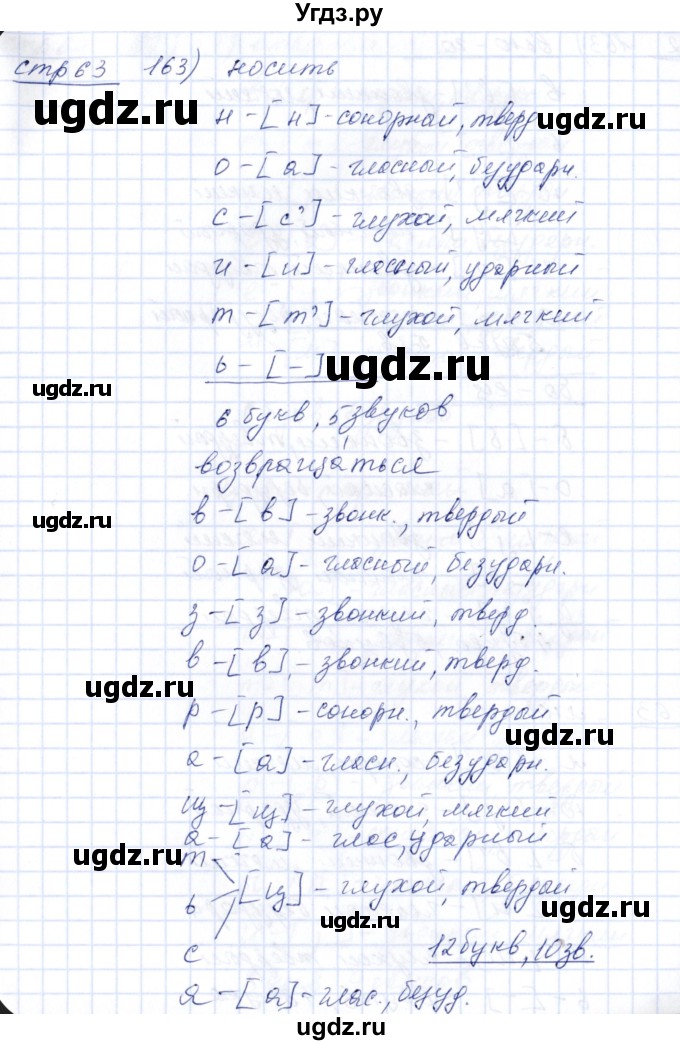 Угдз.ру
стр 63 163) носить
н - [н] - сонорнай, тверд
о - [а] - гласный, безударн.
с - [с'] - глухой, мягкий
и - [и] - гласный, ударный
т - [т'] - глухой, мягкий
ь - [-]
6 букв, 5 звуков
возвраща́ться
в - [в] - звонк., твердый
о - [а] - гласный, безударн.
з - [з] - звонкий, тверд.
в - [в] - звонкий, тверд.
р - [р] - сонорн., твердый
а - [а] - гласн., безударн.
щ - [щ] - глухой, мягкий
а - [а] - глас, ударный
т
ь [ц] - глухой, твердый
с 12 букв, 10 зв.
я - [а] - глас., безуд.
ugdz.ru
ugdz.ru
ugdz.ru
ugdz.ru
ugdz.ru
ugdz.ru
ugdz.ru
ugdz.ru
ugdz.ru
ugdz.ru
ugdz.ru